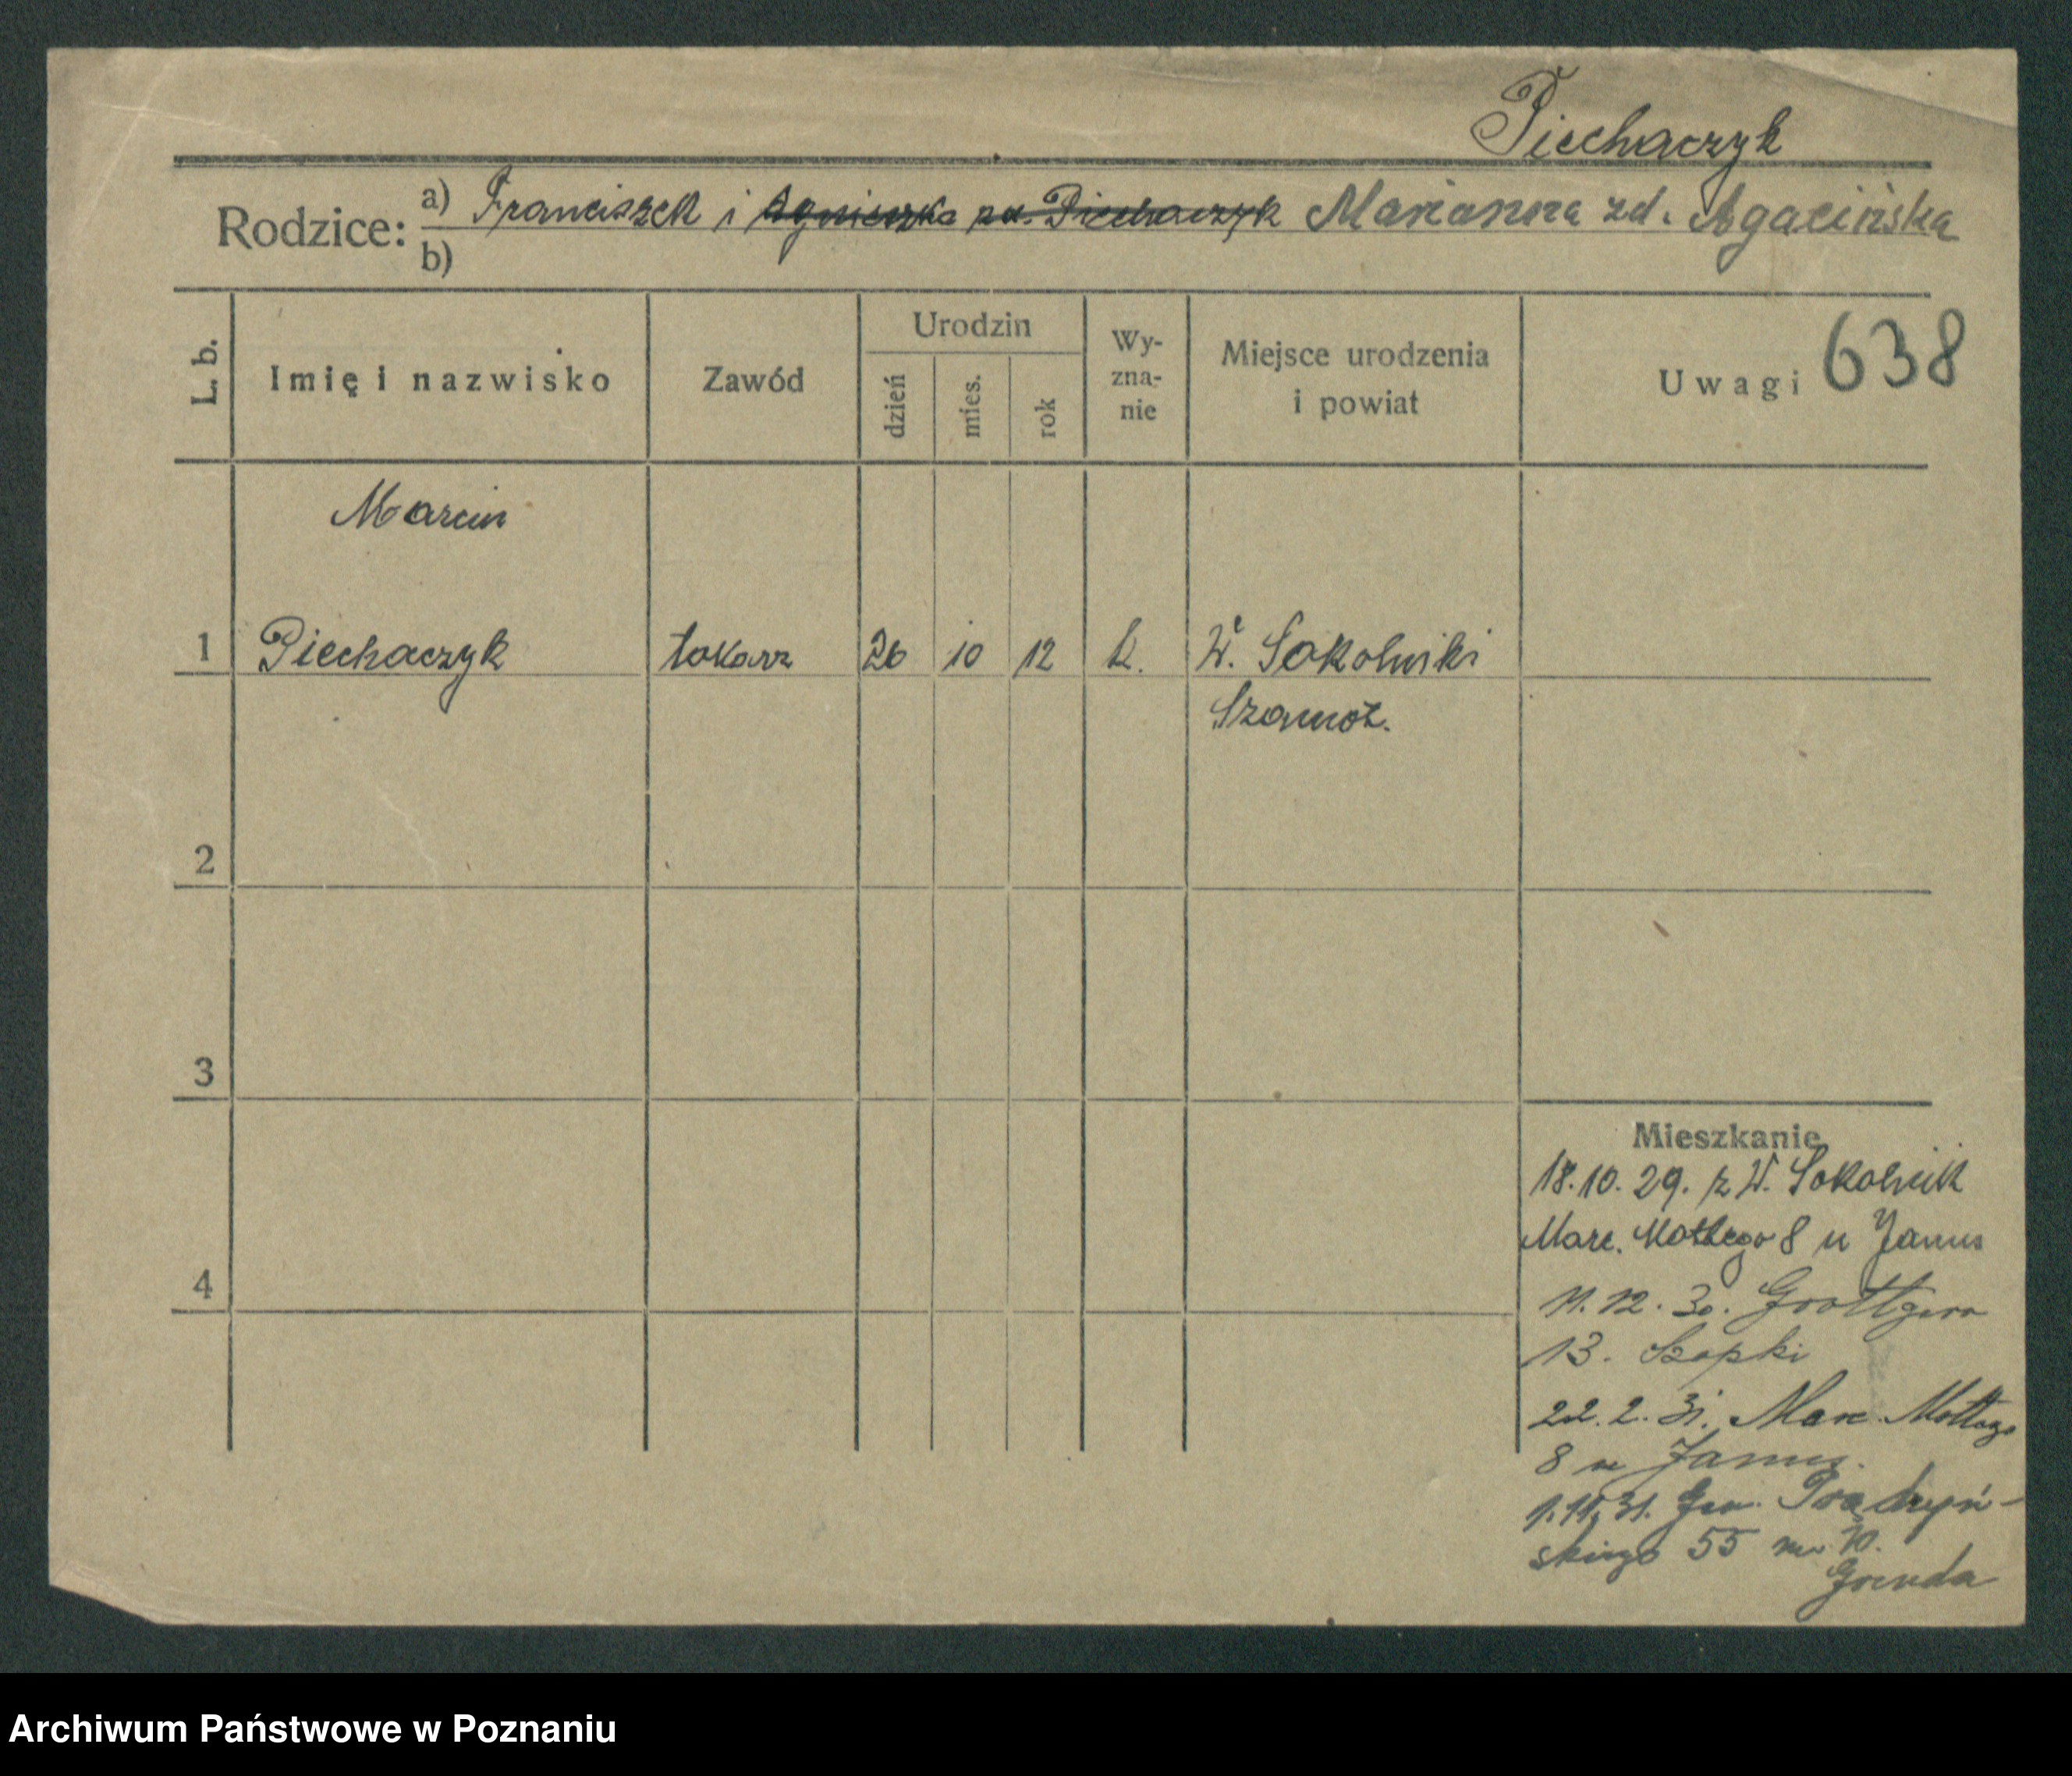 Piechaczyk
Rodzice: a) Franciszek i Agnieszka zd. Piechaczyk Marianna zd. Agacińska
b)
L. b.
Imię i nazwisko
Zawód
Urodzin
dzień
mies.
rok
Wy-
zna-
nie
Miejsce urodzenia
i powiat
Uwagi
638
Marcin
1 Piechaczyk tokarz 26 10 12 k. W. Sokolniki
Szamot.
2
3
4
Mieszkanie
18.10.29. z W. Sokolnik
Marc. Mottego 8 u Janus
11.12.30. Grottgera
13. Szopki
22.2.31. Marc. Mottego
8 u Janus.
1.11.31. Gen. Prądzyń-
skiego 55 m. 10.
Grenda
Archiwum Państwowe w Poznaniu